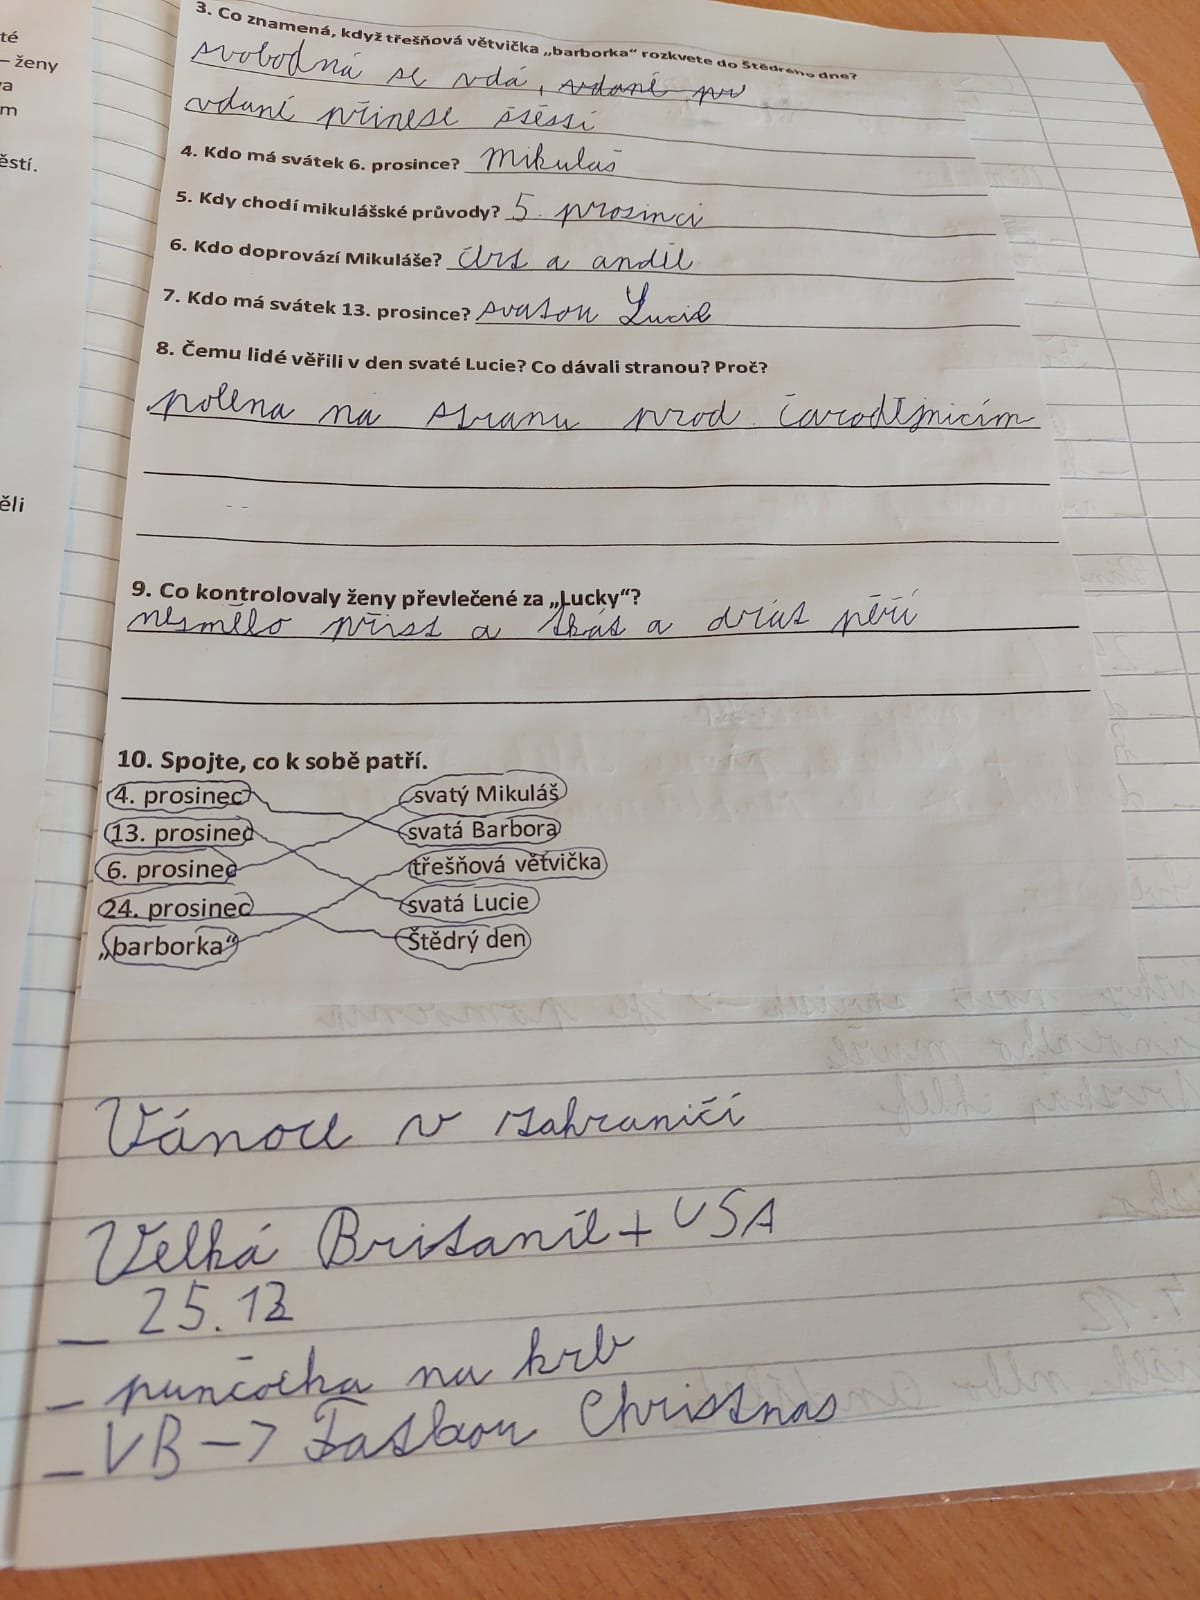 té
– ženy
va
m
ěstí.
ěli
3. Co znamená, když třešňová větvička „barborka“ rozkvete do Štědrého dne?
svobodná se vdá, vdané
vdané přinese štěstí
4. Kdo má svátek 6. prosince? Mikuláš
5. Kdy chodí mikulášské průvody? 5. prosinci
6. Kdo doprovází Mikuláše? čert a anděl
7. Kdo má svátek 13. prosince? svatou Lucie
8. Čemu lidé věřili v den svaté Lucie? Co dávali stranou? Proč?
polena na stranu prod čarodějnicím
9. Co kontrolovaly ženy převlečené za „Lucky“?
nesmělo příst a tkát a drát peří
10. Spojte, co k sobě patří.
4. prosinec svatý Mikuláš
13. prosinec svatá Barbora
6. prosinec třešňová větvička
24. prosinec svatá Lucie
„barborka“ Štědrý den
Vánoce v zahraničí
Velká Britanie + USA
– 25.12
– punčocha na krb
– VB –> Christmas